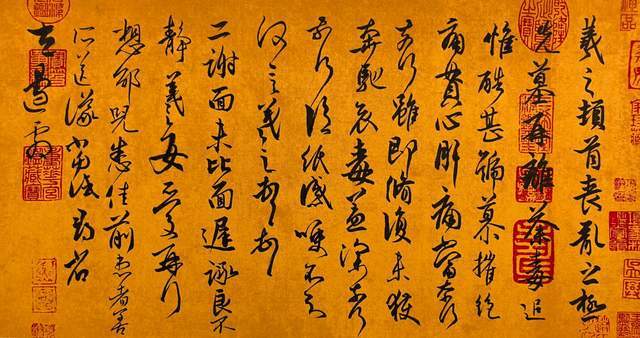 羲之頓首喪亂之極
先墓再離荼毒追
惟酷甚號慕摧絕
痛貫心肝痛當奈何
奈何雖即脩復未獲
奔馳哀毒益深奈何
奈何臨紙感哽不知
何言羲之頓首頓首
二謝面未比面遲詠良不
靜羲之女愛再拜
想邰兒悉佳前患者善
所送議當試尋省
左邊劇